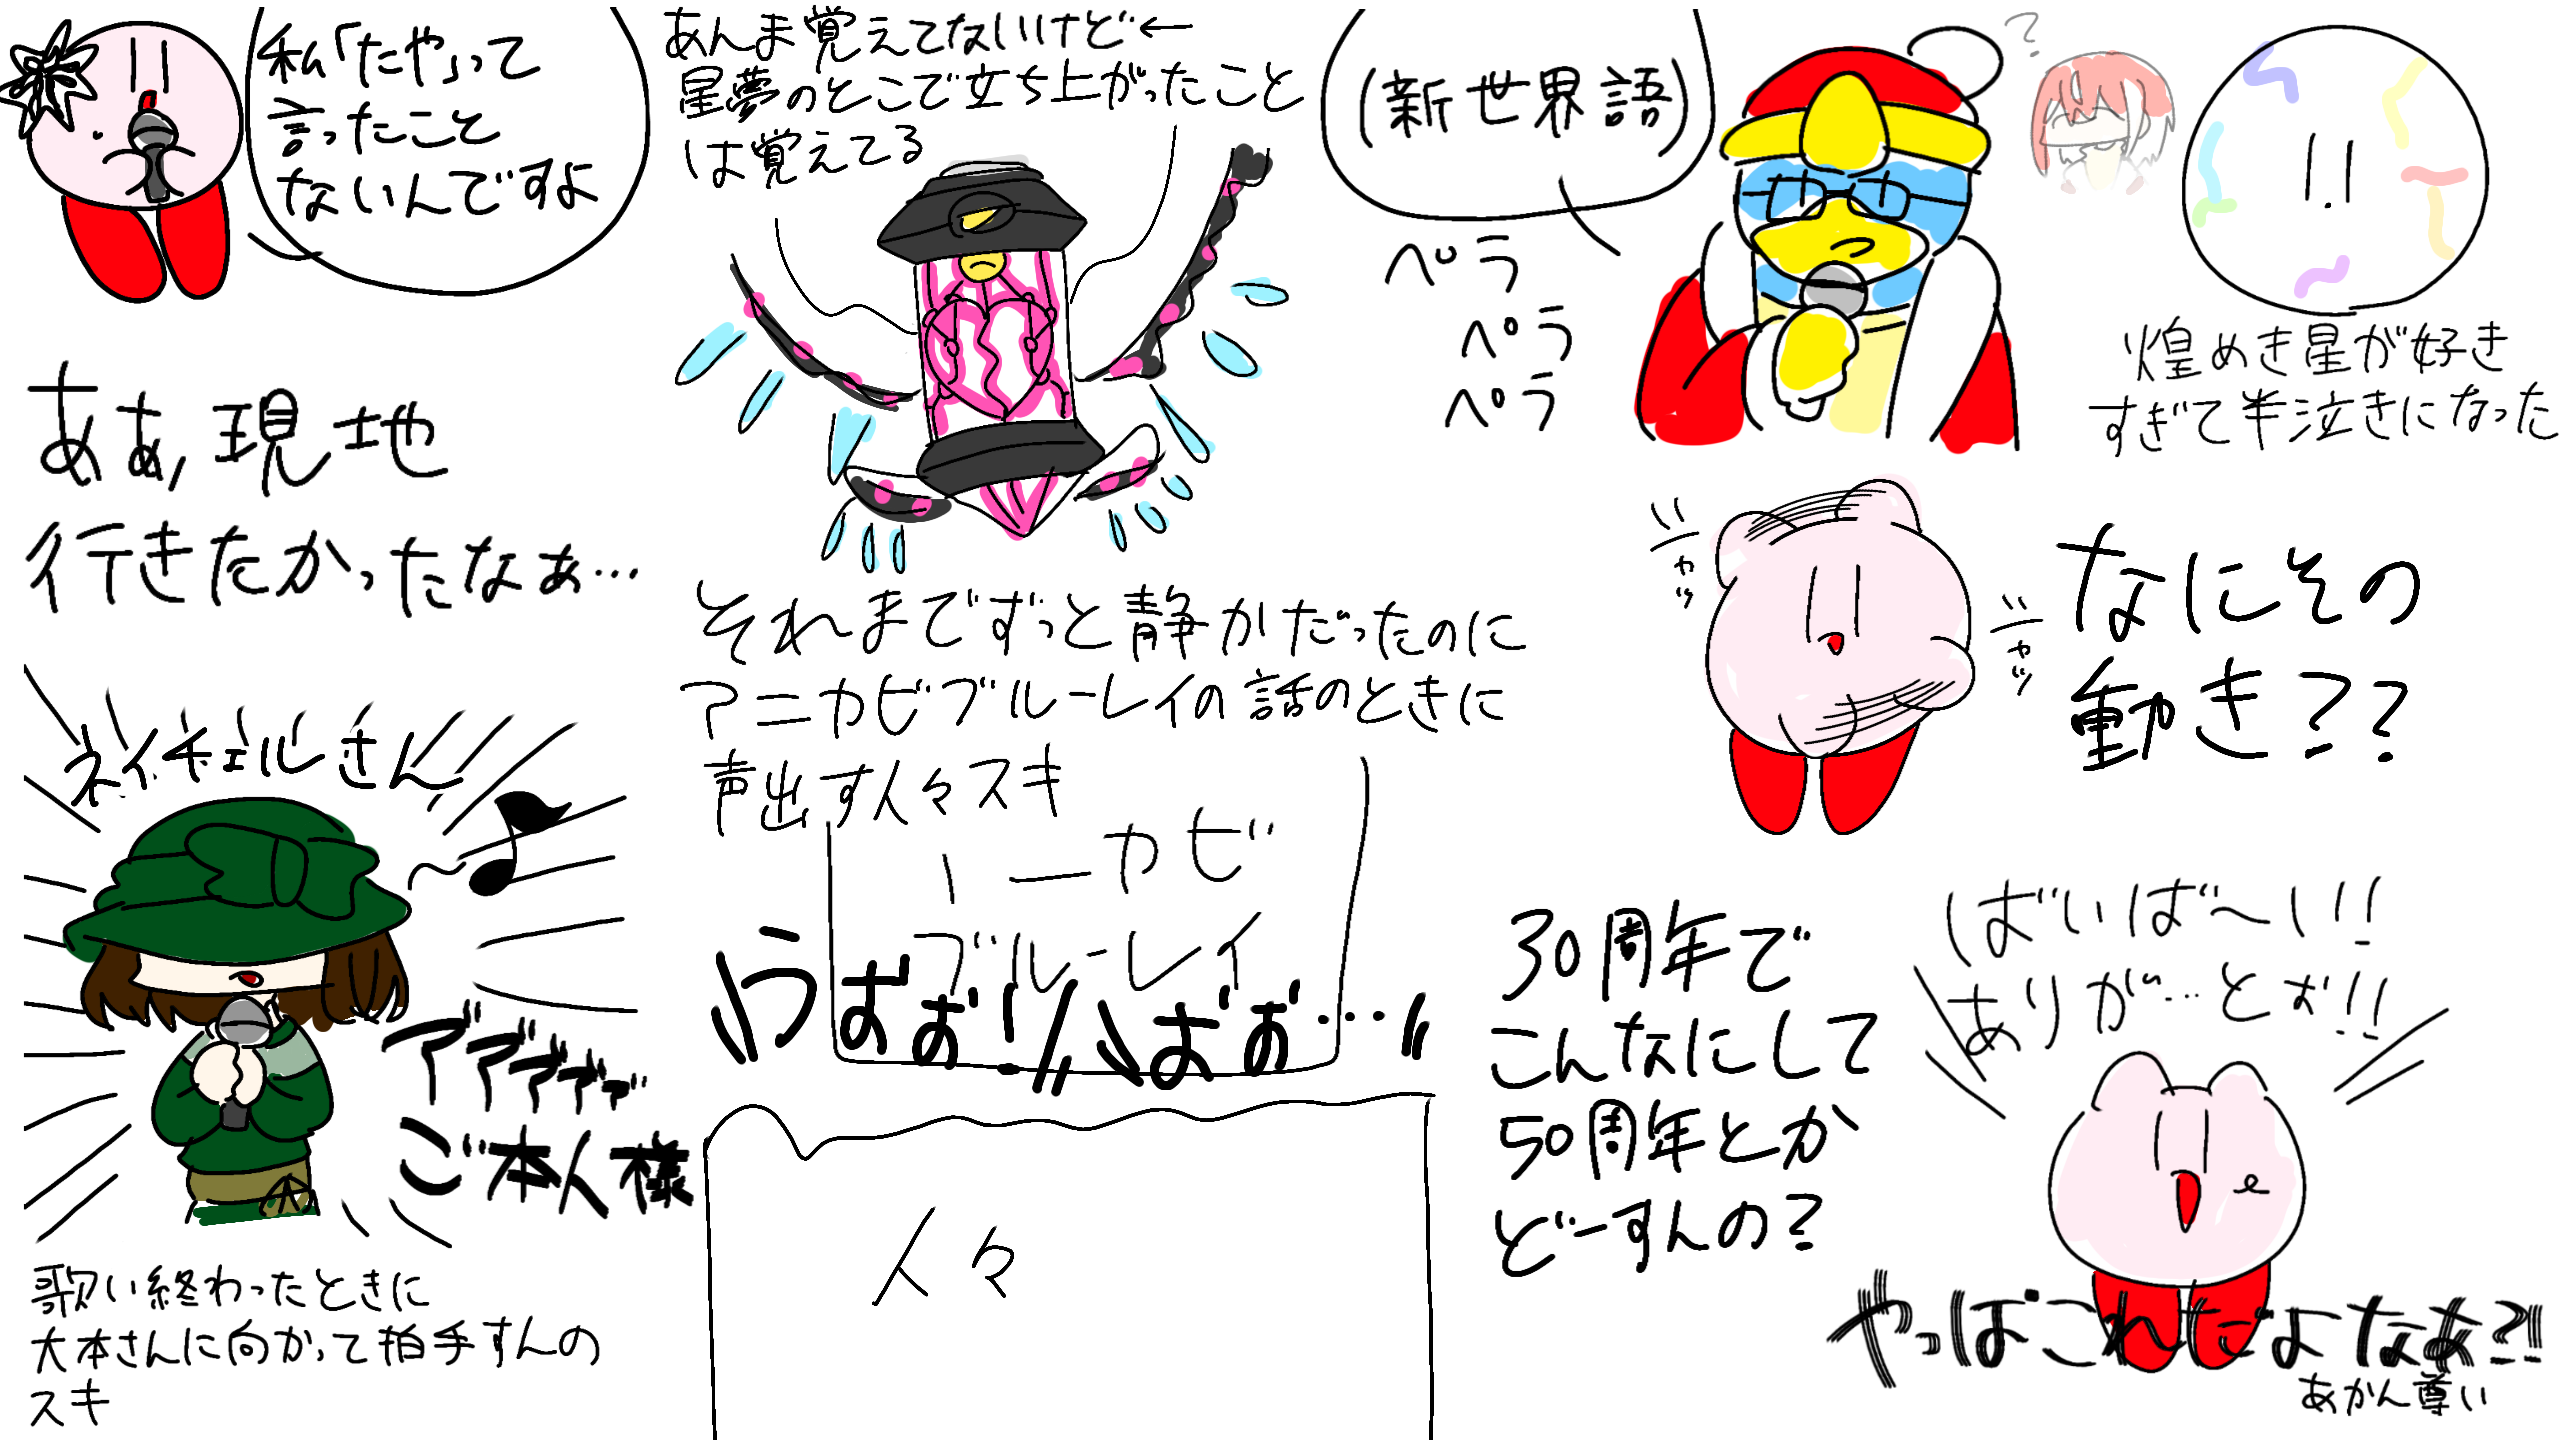 私「たや」って
言ったこと
ないんですよ
あぁ、現地
行きたかったなぁ…
ネイチェルさん
アアアアア
ご本人様
歌い終わったときに
大本さんに向かって拍手すんの
スキ
あんま覚えてないけど←
星夢のとこで立ち上がったこと
は覚えてる
それまでずっと静かだったのに
アニカビブルーレイの話のときに
声出す人々スキ
ニカビ
ブルーレイ
うおお!!
人々
(新世界語)
ペラ
ペラ
ペラ
?
煌めき星が好き
すぎて半泣きになった
なにその
動き??
30周年で
こんなにして
50周年とか
どーすんの?
ばいば〜い!!
ありが…とぉ!!
やっぱこれだよなあ?!
あかん尊い